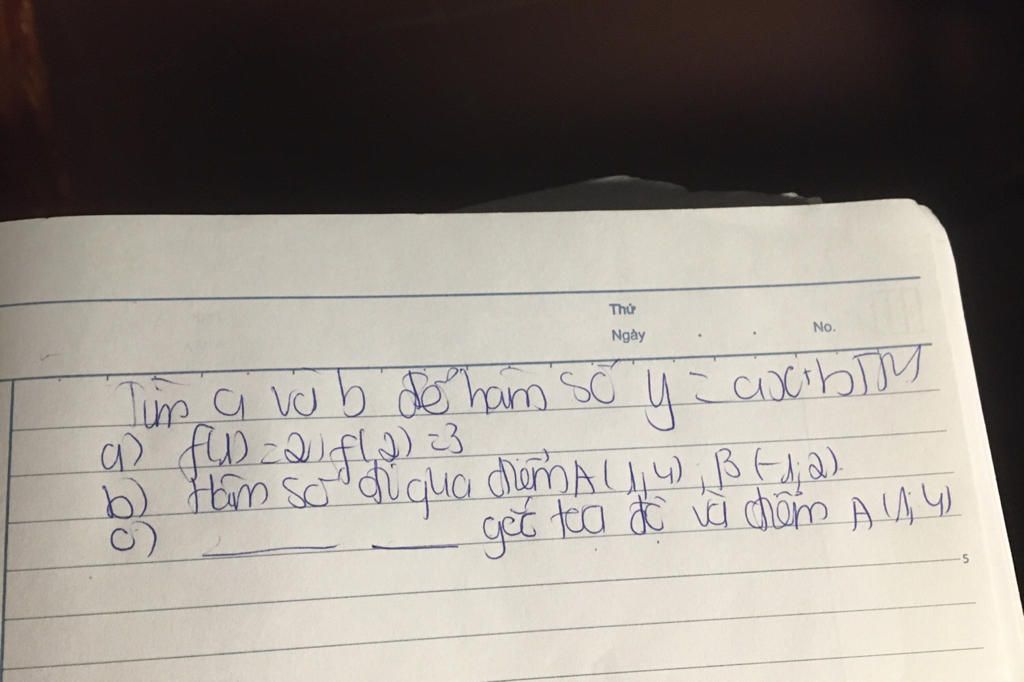 Thứ
Ngày . . No.
Tìm a và b để hàm số y = ax+b TM
a) f(1) = 2, f(2) = 3
b) Hàm số đi qua điểm A (1,4), B (-1,2).
c) ___ ___ gốc tọa độ và điểm A (1,4)
5